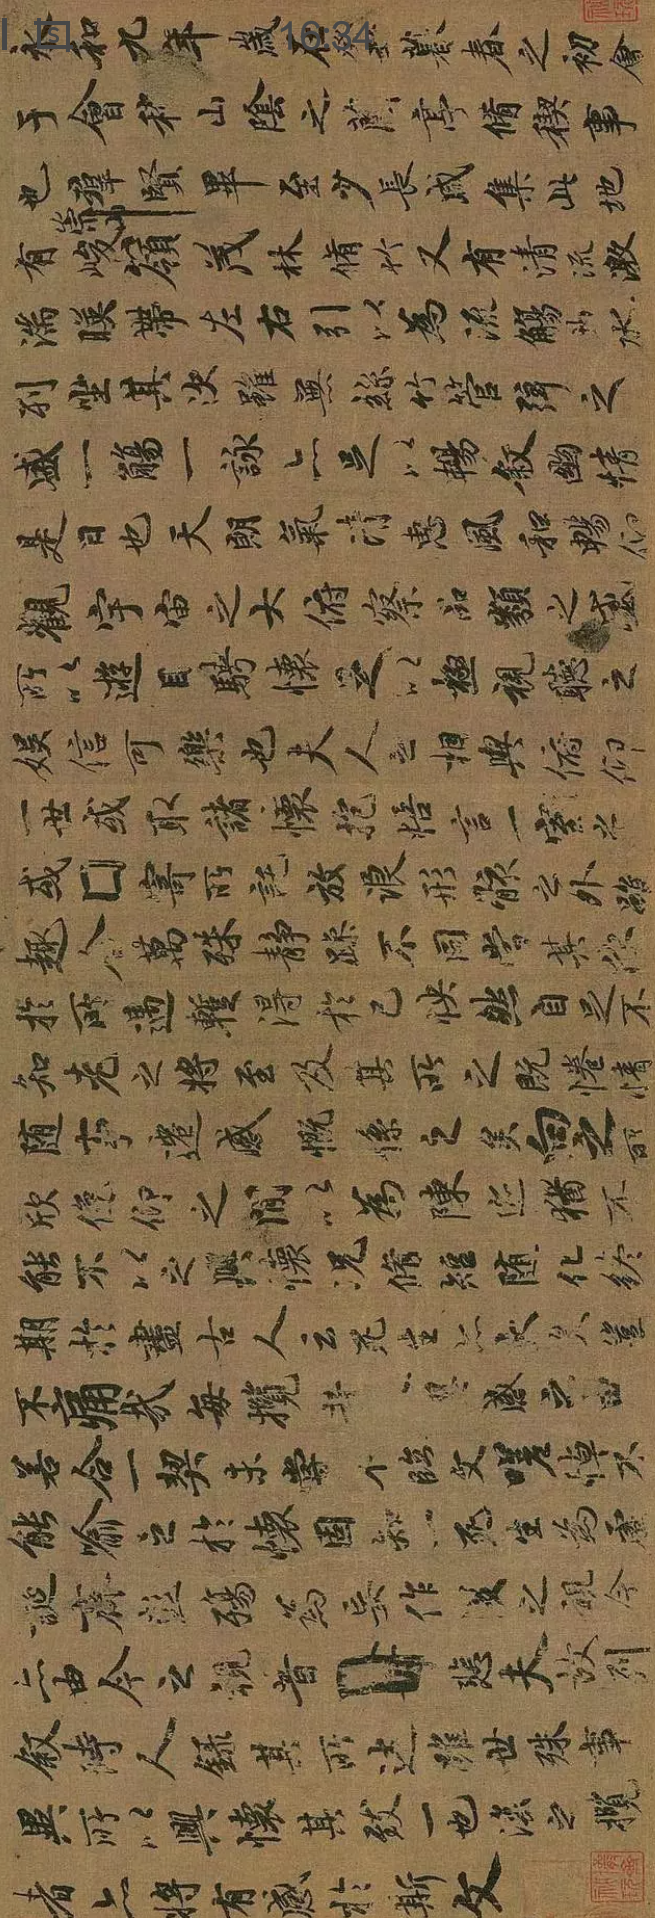 16:34
永和九年歲在癸丑暮春之初會
于會稽山陰之蘭亭脩稧事
也羣賢畢至少長咸集此地
有崇山峻領茂林脩竹又有清流激
湍暎帶左右引以為流觴曲水
列坐其次雖無絲竹管弦之
盛一觴一詠亦足以暢敘幽情
是日也天朗氣清惠風和暢仰
觀宇宙之大俯察品類之盛
所以遊目騁懷足以極視聽之
娛信可樂也夫人之相與俯仰
一世或取諸懷抱悟言一室之內
或因寄所託放浪形骸之外雖
趣舍萬殊靜躁不同當其欣
於所遇暫得於己怏然自足不
知老之將至及其所之既惓情
隨事遷感慨係之矣向之所
欣俛仰之閒以為陳迹猶不
能不以之興懷況脩短隨化終
期於盡古人云死生亦大矣豈
不痛哉每攬昔人興感之由
若合一契未嘗不臨文嗟悼不
能喻之於懷固知一死生為虛
誕齊彭殤為妄作後之視今
亦由今之視昔悲夫故列
敘時人錄其所述雖世殊事
異所以興懷其致一也後之攬
者亦將有感於斯文